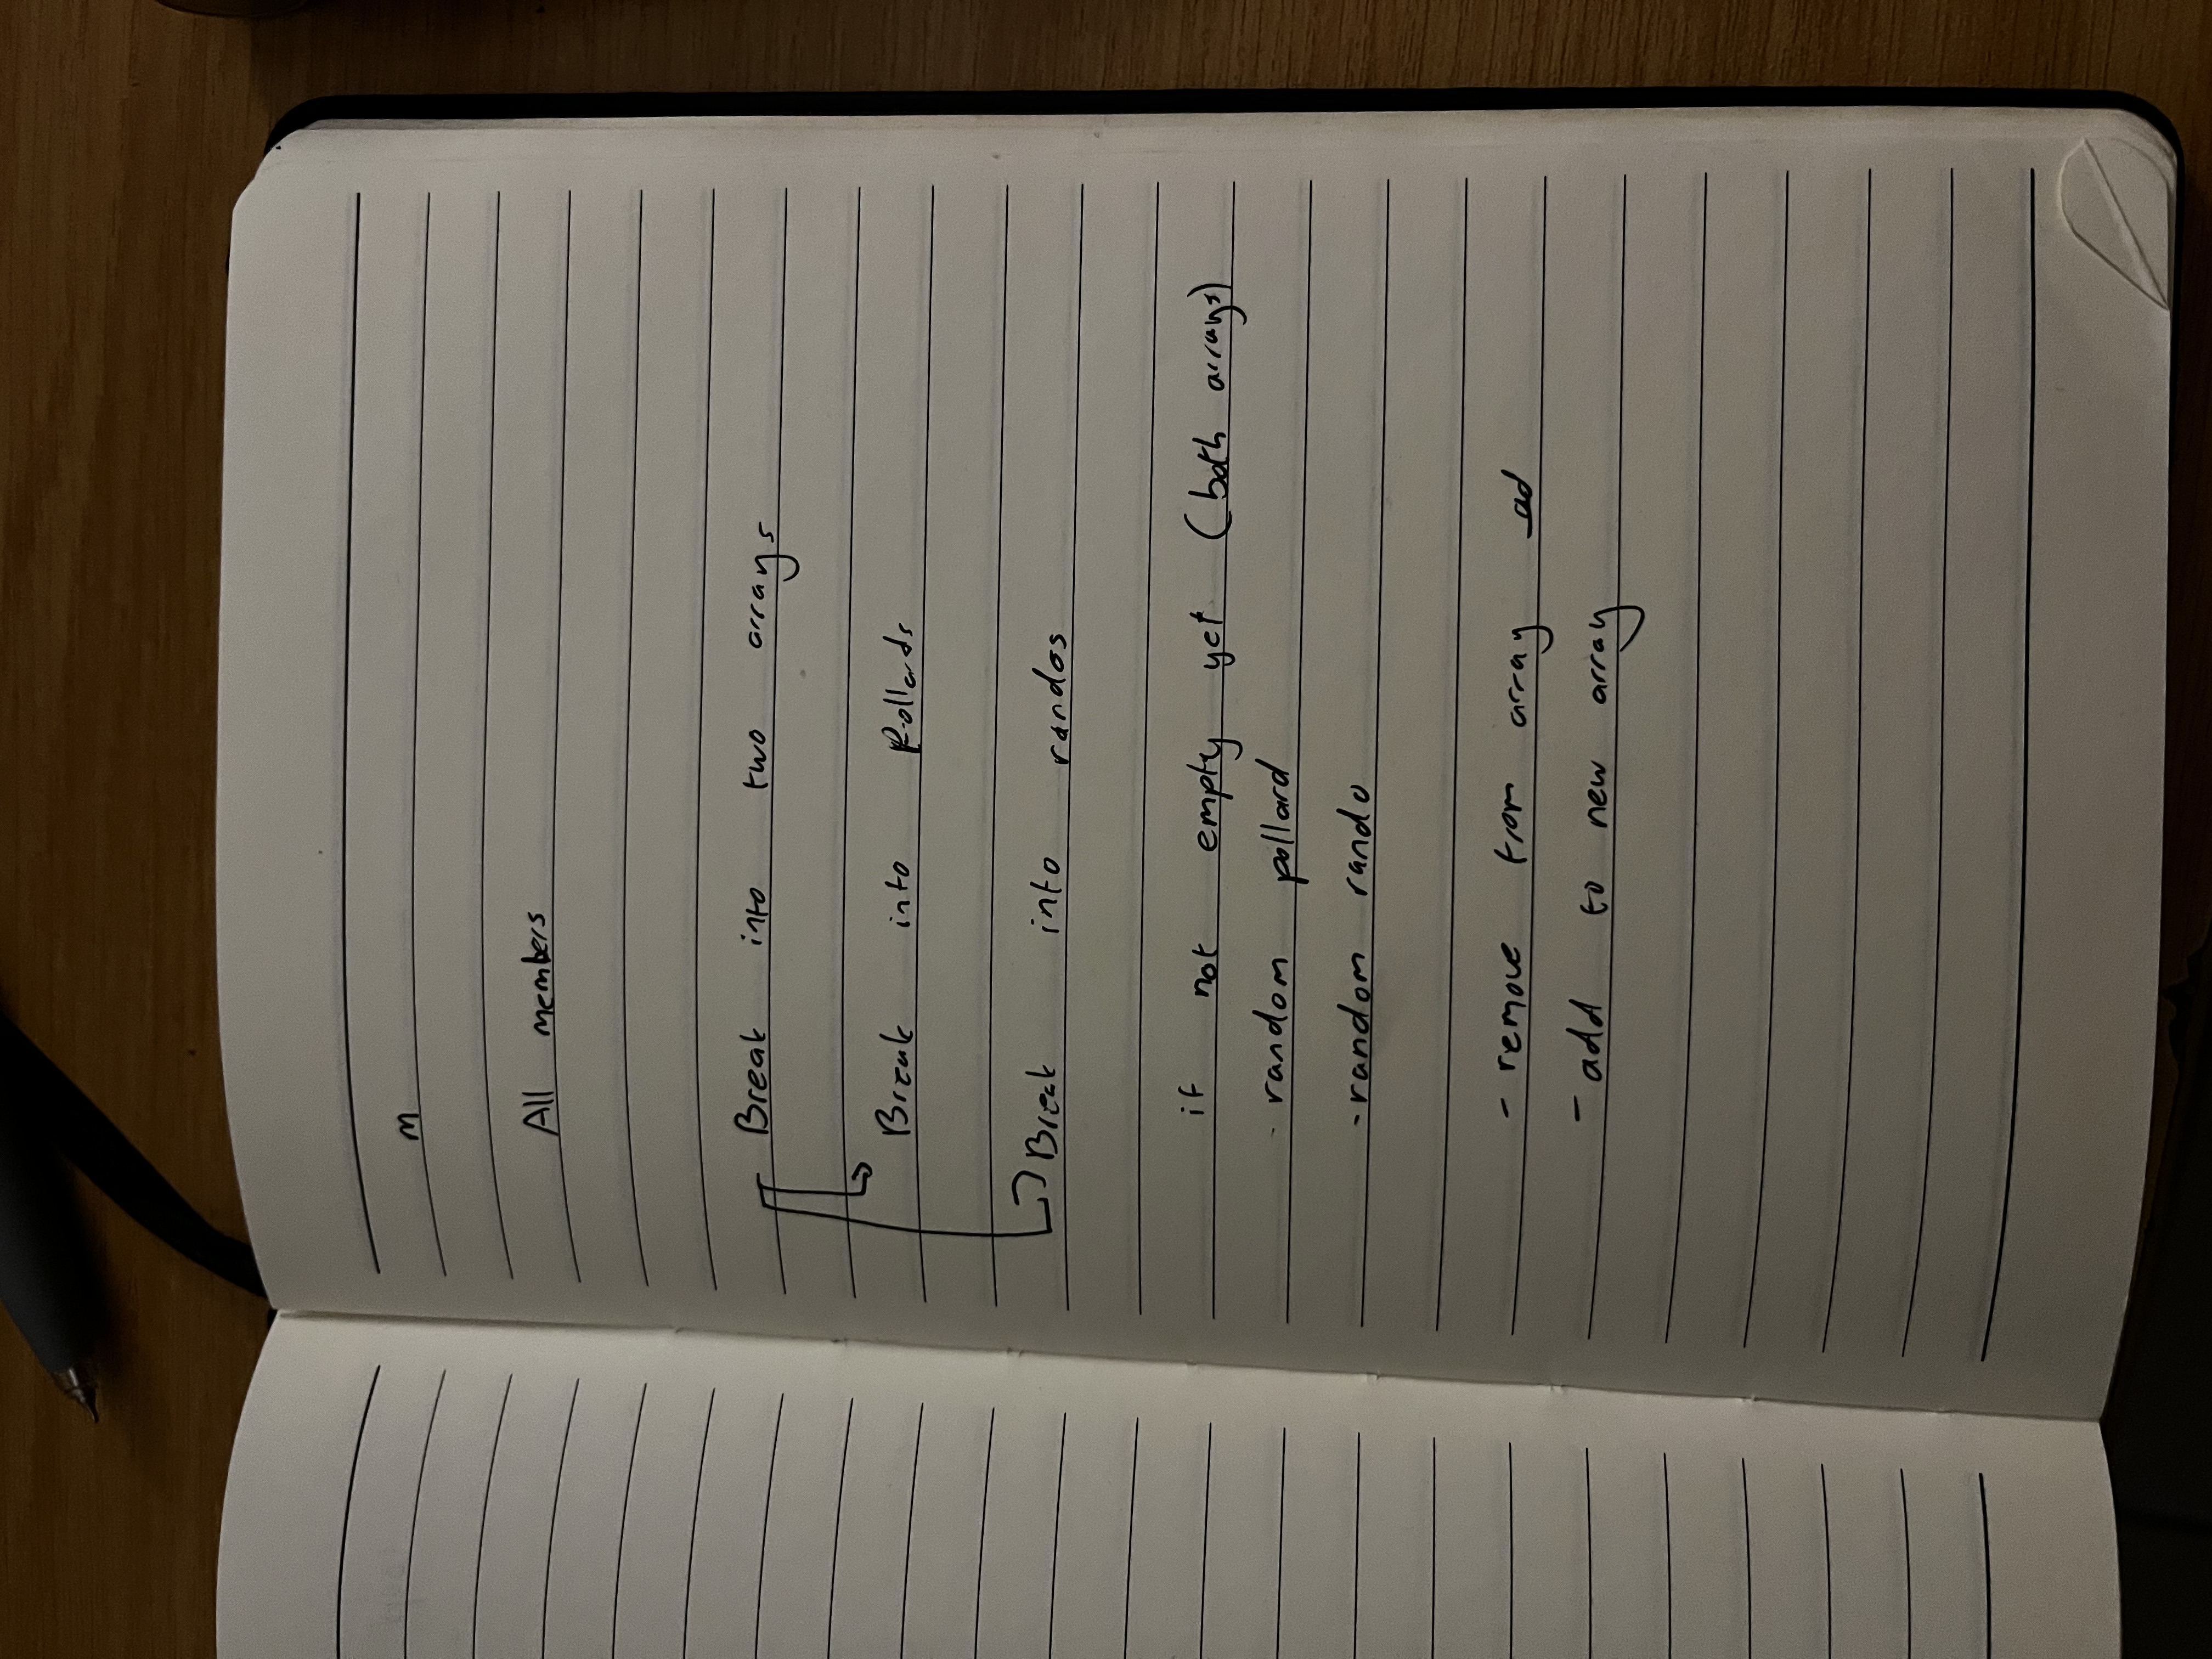 m
All members
Break into two arrays
Break into Pollards
Break into randos
if not empty yet (both arrays)
- random pollard
- random rando
- remove from array
- add to new array